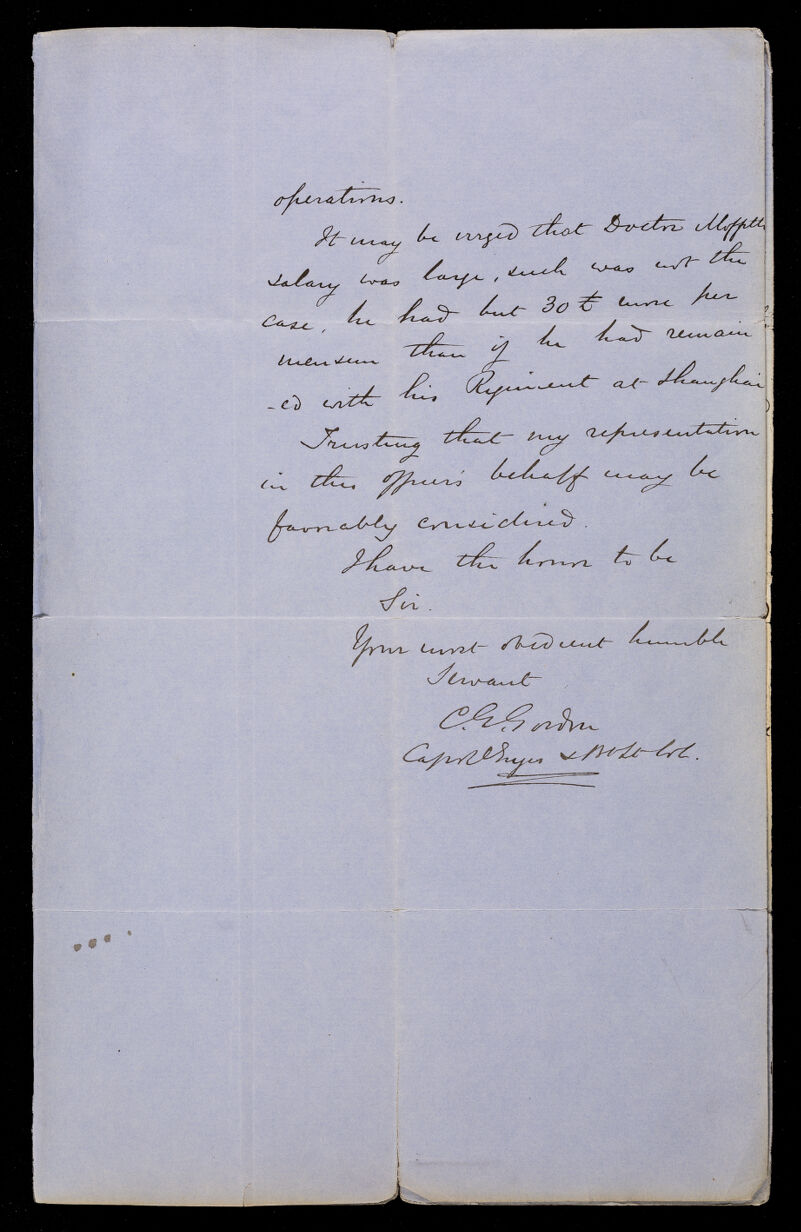 operations.
It may be urged that Doctor Moffitts
salary was large, such was not the
case, he had but 30 £ more per
mensem than if he had remain
-ed with his Regiment at Shanghai
Trusting that my representation
in this officer's behalf may be
favorably considered.
I have the honor to be
Sir.
Your most obedient humble
Servant
C. G. Gordon
Capt R Engrs & Bt Lt Col.